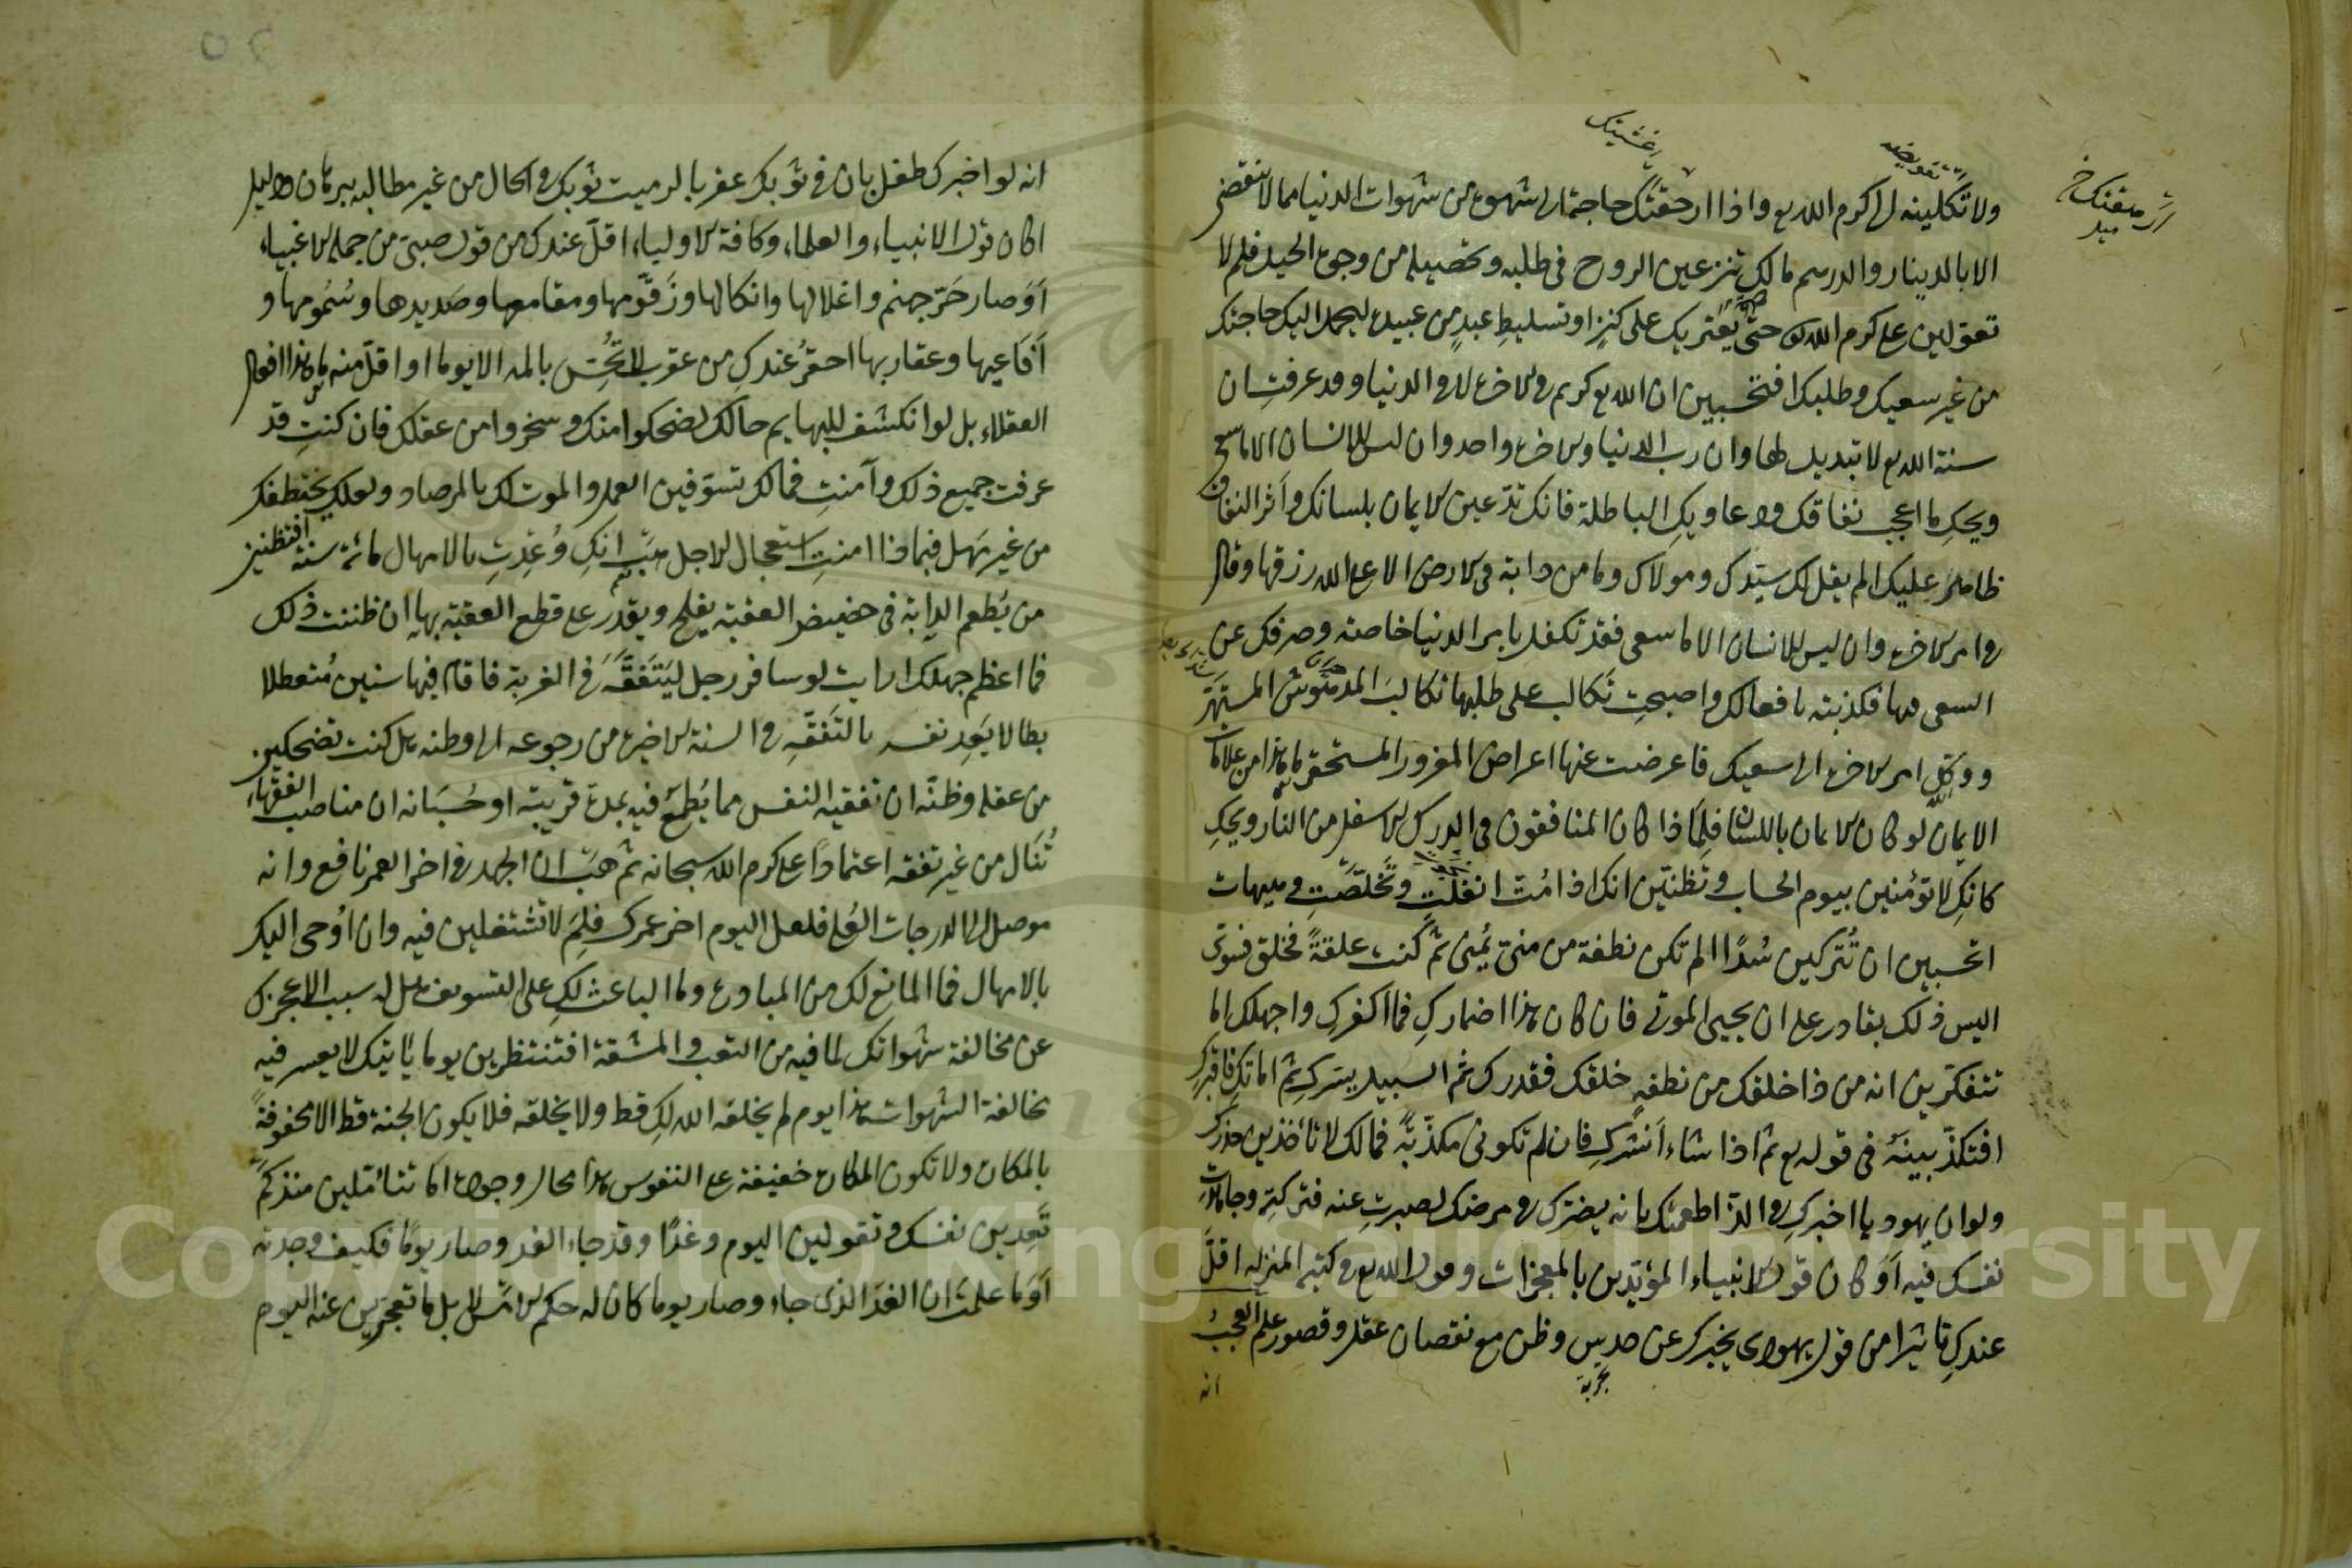 ولا تكلينه الى كرم الله تع واذا ارهقتك حاجة الى شهوة من شهوات الدنيا مما لا ينقضى
الا بالدينار والدرهم مالك تنزعين الروح فى طلبه وتحصيله من وجوه الحيل فلم لا
تعولين على كرم الله تع حتى يعثر بك على كنز او تسليط عبد من عبيده ليحمل اليك حاجتك
من غير سعيك وطلبك افتحسبين ان الله تع كريم فى الاخرة لا فى الدنيا وقد عرفت ان
سنة الله تع لا تبديل لها وان رب الدنيا والاخرة واحد وان ليس للانسان الا ما سعى
ويحك ما اعجب نفاقك ودعاويك الباطلة فانك تدعين الايمان بلسانك واثر النفاق
ظاهر عليك الم يقل لك سيدك ومولاك وما من دابة فى الارض الا على الله رزقها وقال
فى امر الاخرة وان ليس للانسان الا ما سعى فقد تكفل بامر الدنيا خاصة وصرفك عن
السعى فيها فكذبته بافعالك واصبحت تكالب على طلبها تكالب المدهوش المستهتر
ووكل امر الاخرة الى سعيك فاعرضت عنها اعراض المغرور المستحقر ما هذا من علامات
الايمان لو كان الايمان باللسان فلماذا كان المنافقون فى الدرك الاسفل من النار ويحك
كانك لا تؤمنين بيوم الحساب وتظنين انك اذا مت انفلت وتخلصت وهيهات
اتحسبين ان تتركين سدا الم تكن نطفة من منى يمنى ثم كنت علقة فخلق فسوى
اليس ذلك بقادر على ان يحيى الموتى فان كان هذا اضمارك فما اكفرك واجهلك اما
تتفكرين انه من ماذا خلقك من نطفة خلقك فقدرك ثم السبيل يسرك ثم اماتك فاقبرك
افتكذبينه فى قوله تع ثم اذا شاء انشرك فان لم تكونى مكذبة فمالك لا تأخذين حذرك
ولو ان يهوديا اخبرك فى الذ اطعمتك بانه يضرك فى مرضك لصبرت عنه وتركته وجاهدت
نفسك فيه أو كان قول الانبياء المؤيدين بالمعجزات وقول الله تع فى كتبه المنزله اقل
عندك تاثيرا من قول يهودى يخبرك عن حدس وظن مع نقصان عقل وقصور علم العجب
انه
انه لو اخبرك طفل بان فى ثوبك عقربا لرميت ثوبك فى الحال من غير مطالبه ببرهان ودليل
اكان قول الانبياء والعلماء وكافة الاولياء اقل عندك من قول صبى من جملة الاغبياء
أو صار حر جهنم واغلالها وانكالها وزقومها ومقامعها وصديدها وسمومها و
أفاعيها وعقاربها احقر عندك من عقرب لا تحس بالمه الا يوما او اقل منه ما هذا افعال
العقلاء بل لو انكشف للبهايم حالك لضحكوا منك وسخروا من عقلك فان كنت قد
عرفت جميع ذلك وآمنت فمالك تسوفين العمل والموت لك بالمرصاد ولعله يختطفك
من غير مهل فبماذا امنت استعجال الاجل هب انك وعدت بالامهال مائة سنة افتظنين
من يطعم الدابة فى حضيض العقبة يفلح ويقدر على قطع العقبة بها ان ظننت ذلك
فما اعظم جهلك ارايت لو سافر رجل ليتفقه فى الغربة فاقام فيها سنين متعطلا
بطالا يعد نفسه بالتفقه فى السنة الاخيرة من رجوعه الى وطنه هل كنت تضحكين
من عقله وظنه ان تفقيه النفس مما يطمع فيه بمدة قريبة او حسبانه ان مناصب الفقهاء
تنال من غير تفقه اعتمادا على كرم الله سبحانه ثم هب ان الجهد فى اخر العمر نافع وانه
موصل الى الدرجات العلى فلعل اليوم اخر عمرك فلم لا تشتغلين فيه وان اوحى اليك
بالامهال فما المانع لك من المبادرة وما الباعث لك على التسويف هل له سبب الا عجزك
عن مخالفة شهواتك لما فيه من التعب والمشقة افتنتظرين يوما يأتيك لا يعسر فيه
مخالفة الشهوات هذا يوم لم يخلقه الله لك قط ولا يخلقه فلا يكون الجنة قط الا محفوفة
بالمكاره ولا تكون المكاره خفيفة على النفوس هذا محال وجوده اما تتأملين منذ كم
تعدين نفسك وتقولين اليوم وغدا وقد جاء الغد وصار يوما فكيف وجدته
أو ما علمت ان الغد الذى جاء وصار يوما كان له حكم الامس لا بل ما تعجزين عنه اليوم